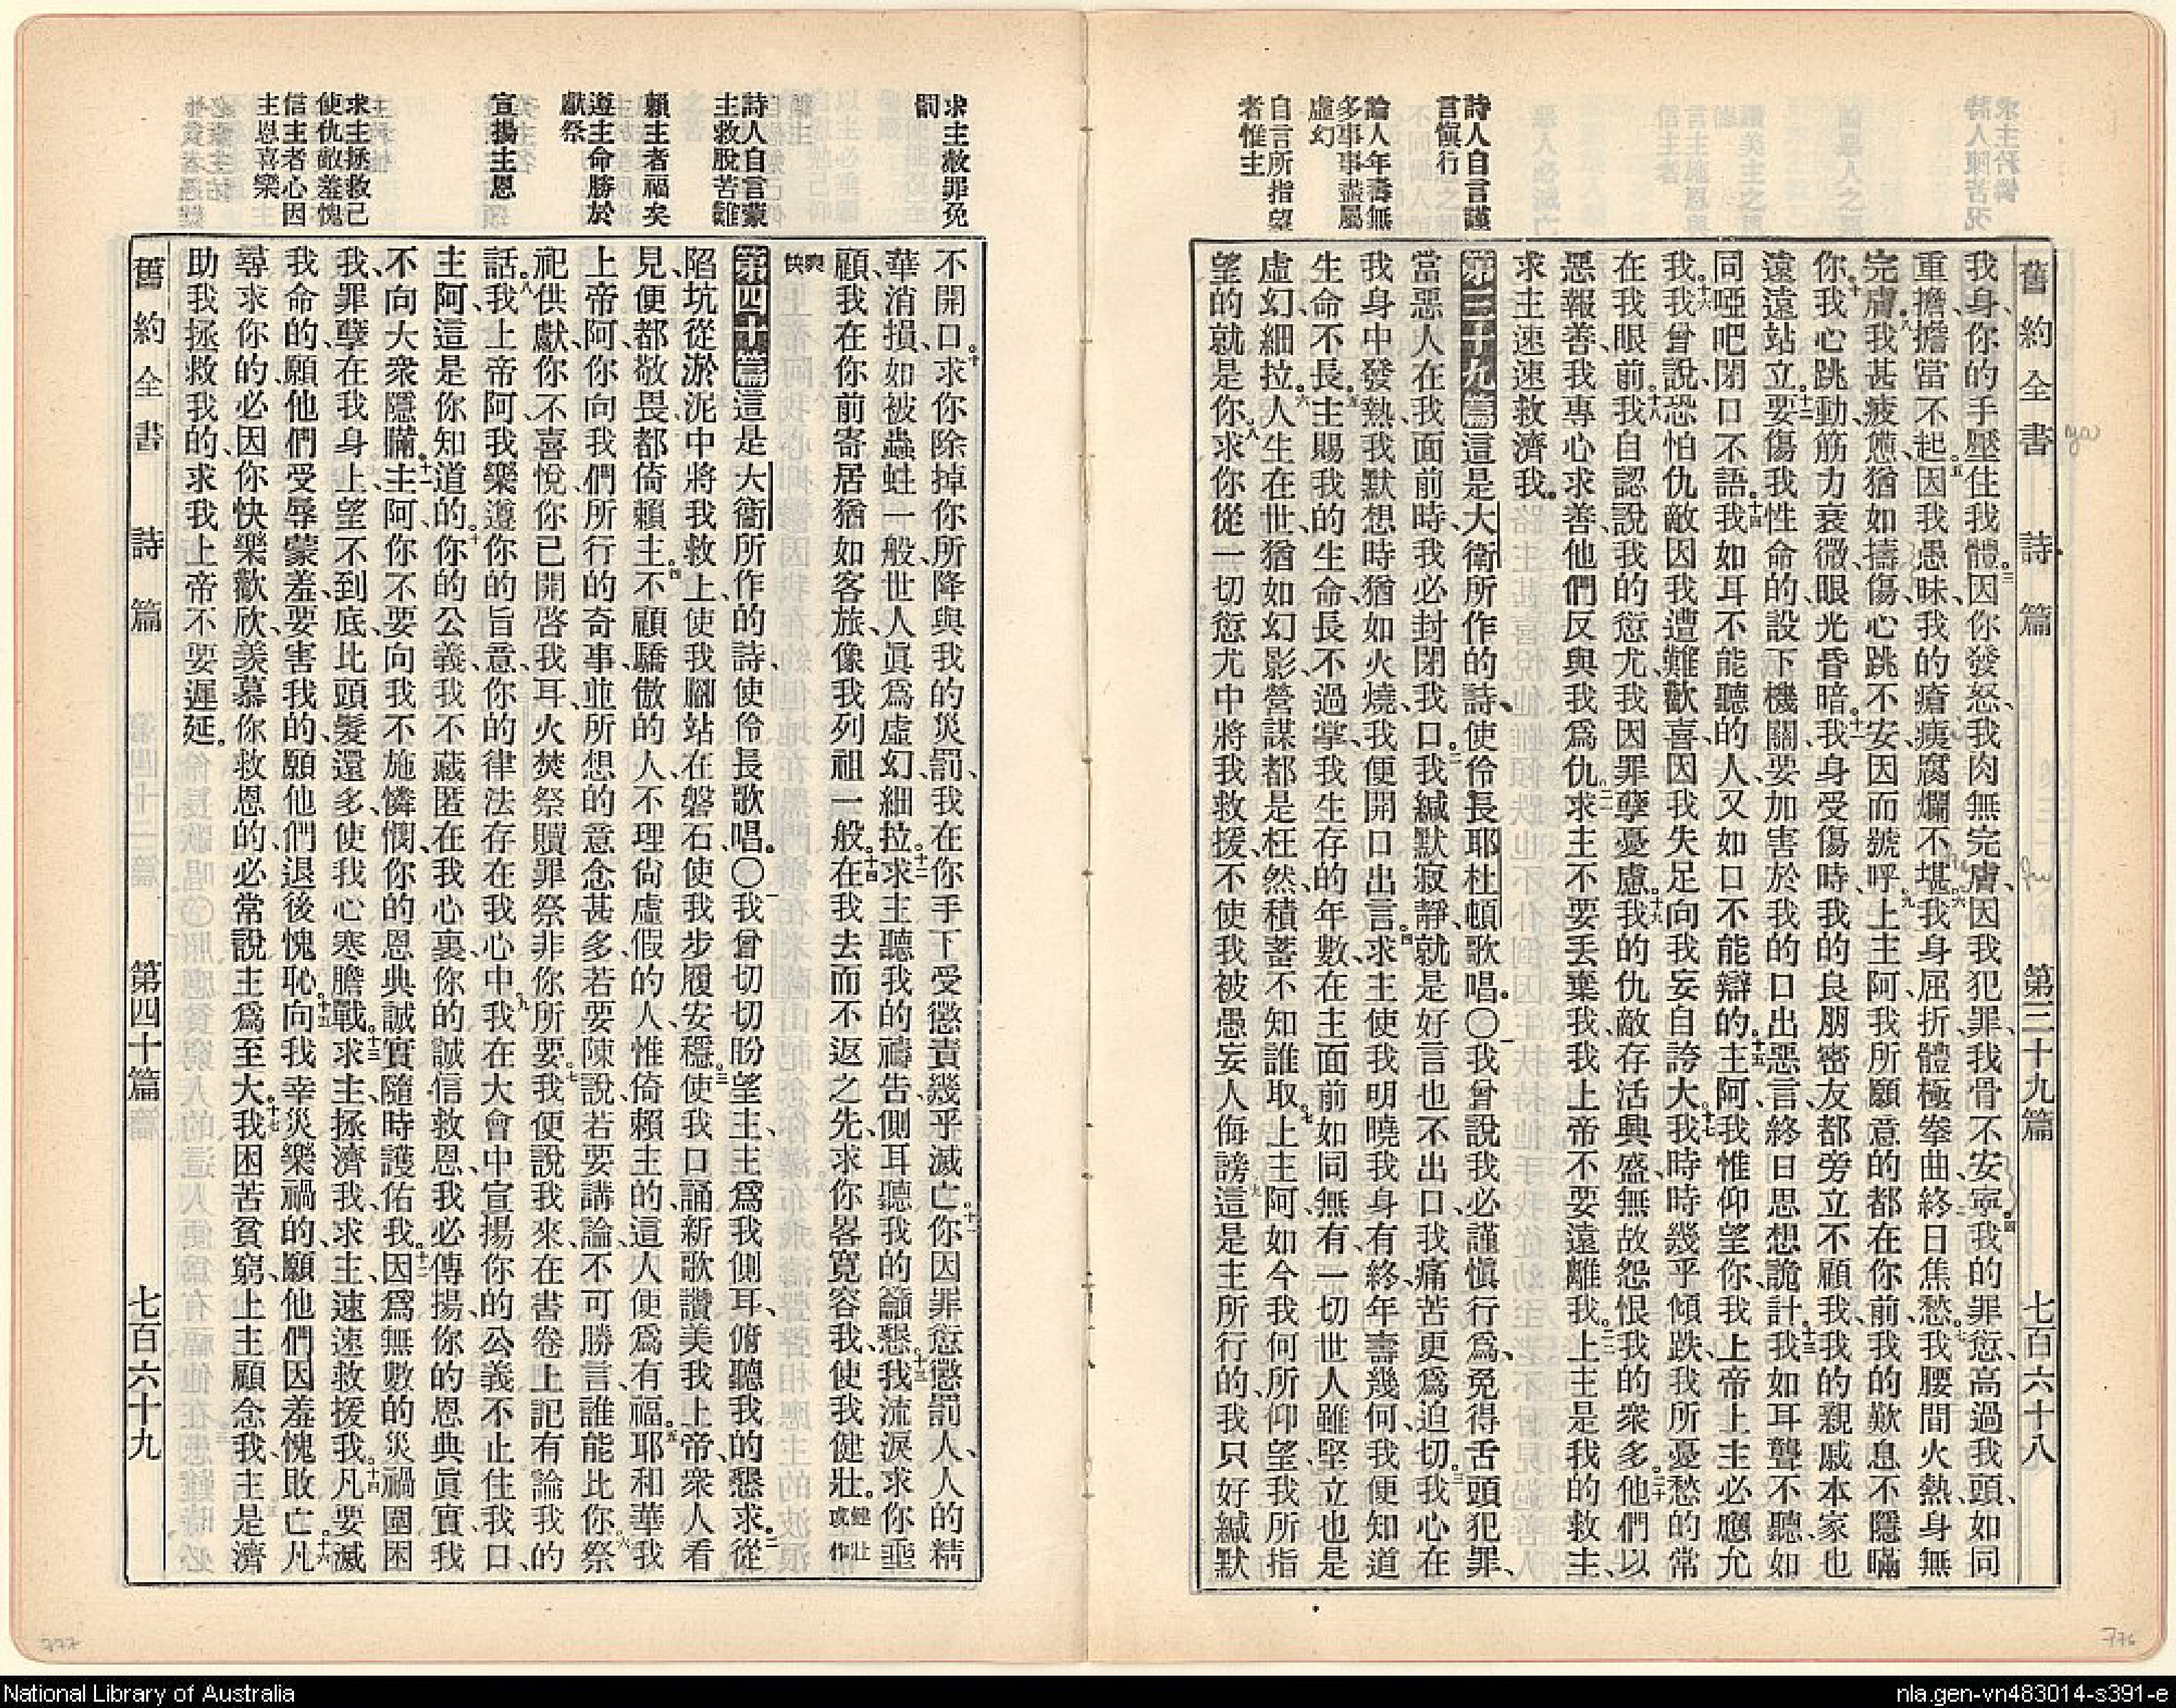 舊約全書 詩篇 第三十九篇 七百六十八
我身、你的手壓住我體。三因你發怒、我肉無完膚、因我犯罪、我骨不安寧。四我的罪愆、高過我頭、如同
重擔、擔當不起。五因我愚昧、我的瘡痍、腐爛不堪。六我身屈折、體極拳曲、終日焦愁。七我腰間火熱、身無
完膚。八我甚疲憊、猶如擣傷、心跳不安、因而號呼。九上主阿、我所願意的、都在你前、我的歎息、不隱瞞
你。十我心跳動、筋力衰微、眼光昏暗。十一我身受傷時、我的良朋密友、都旁立不顧我、我的親戚本家、也
遠遠站立。十二要傷我性命的、設下機關、要加害於我的、口出惡言、終日思想詭計。十三我如耳聾不聽、如
同啞吧、閉口不語。十四我如耳不能聽的人、又如口不能辯的。十五主阿、我惟仰望你、我上帝上主必應允
我。十六我曾說、恐怕仇敵因我遭難歡喜、因我失足、向我妄自誇大。十七我時時幾乎傾跌、我所憂愁的、常
在我眼前。十八我自認說我的愆尤、我因罪孽憂慮。十九我的仇敵、存活興盛、無故怨恨我的衆多。二十他們以
惡報善、我專心求善、他們反與我爲仇。二一求主不要丟棄我、我上帝不要遠離我。二二上主是我的救主、
求主速速救濟我。
詩人自言謹
言愼行
第三十九篇 這是大衛所作的詩、使伶長耶杜頓歌唱。〇一我曾說、我必謹愼行爲、免得舌頭犯罪、
當惡人在我面前時、我必封閉我口。二我緘默寂靜、就是好言也不出口、我痛苦更爲迫切。三我心在
我身中發熱、我默想時、猶如火燒、我便開口出言。四求主使我明曉我身有終、年壽幾何、我便知道
論人年壽無
多事事盡屬
虛幻
生命不長。五主賜我的生命、長不過掌、我生存的年數、在主面前、如同無有、一切世人、雖堅立也是
虛幻細拉。六人生在世、猶如幻影、營謀都是枉然、積蓄不知誰取。七上主阿、如今我何所仰望、我所指
自言所指望
者惟主
望的就是你。八求你從一切愆尤中、將我救援、不使我被愚妄人侮謗。九這是主所行的、我只好緘默
不開口。十求你除掉你所降與我的災罰、我在你手下受懲責、幾乎滅亡。十一你因罪愆懲罰人、人的精
求主赦罪免
罰
華消損、如被蟲蛀一般、世人眞爲虛幻細拉。十二求主聽我的禱告、側耳聽我的籲懇、十三我流淚求你垂
顧、我在你前寄居、猶如客旅、像我列祖一般。十四在我去而不返之先、求你畧寬容我、使我健壯。健壯或作
爽快
詩人自言蒙
主救脫苦難
第四十篇 這是大衛所作的詩、使伶長歌唱。〇一我曾切切盼望主、主爲我側耳、俯聽我的懇求。二從
陷坑從淤泥中、將我救上、使我腳站在磐石、使我步履安穩。三使我口誦新歌、讚美我上帝、衆人看
賴主者福矣
見、便都敬畏、都倚賴主。四不顧驕傲的人、不理尙虛假的人、惟倚賴主的、這人便爲有福。五耶和華我
上帝阿、你向我們所行的奇事、並所想的意念甚多、若要陳說、若要講論、不可勝言、誰能比你。六祭
遵主命勝於
獻祭
祀供獻、你不喜悅、你已開啓我耳、火焚祭贖罪祭、非你所要。七我便說、我來、在書卷上記有論我的
話。八我上帝阿、我樂遵你的旨意、你的律法、存在我心中。九我在大會中、宣揚你的公義、不止住我口、
宣揚主恩
主阿、這是你知道的。十你的公義、我不藏匿在我心裏、你的誠信救恩、我必傳揚、你的恩典眞實、我
不向大衆隱瞞。十一主阿、你不要向我不施憐憫、你的恩典誠實、隨時護佑我。十二因爲無數的災禍圍困
我、我罪孽在我身上、望不到底、比頭髮還多、使我心寒膽戰。十三求主拯濟我、求主速速救援我。十四凡要滅
求主拯救己
使仇敵羞愧
信主者心因
主恩喜樂
我命的、願他們受辱蒙羞、要害我的、願他們退後愧恥。十五向我幸災樂禍的、願他們因羞愧敗亡。十六凡
尋求你的、必因你快樂歡欣、羨慕你救恩的、必常說主爲至大。十七我困苦貧窮、上主顧念我、主是濟
助我拯救我的、求我上帝不要遲延。
舊約全書 詩篇 第四十篇 七百六十九
777
776
National Library of Australia
nla.gen-vn483014-s391-e